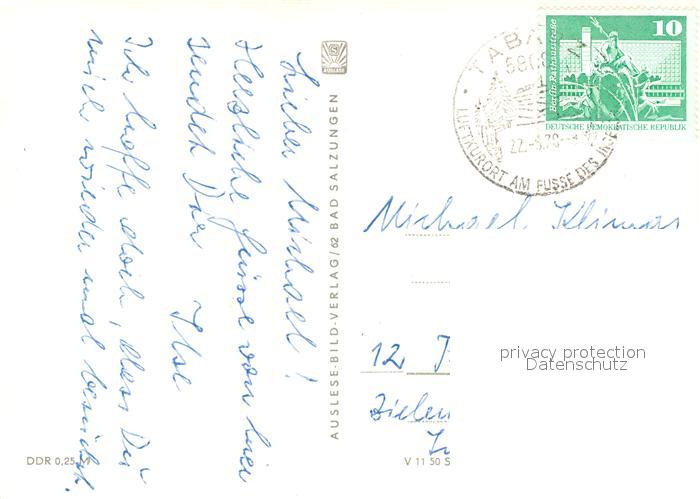 Lieber Michael!
Herzliche Grüsse von hier
sendet Dir Ilse
Ich hoffe doch, dass Du
mich wieder mal besuchst.
AUSLESE-BILD-VERLAG/62 BAD SALZUNGEN
AUSLESE
DDR 0,25 M
V 11 50 S
10
Berlin, Rathausstraße
DEUTSCHE DEMOKRATISCHE REPUBLIK
TABARZ
5808
22.-8.78
LUFTKURORT AM FUSSE DES INSEL
Michael Klimas
12
Zielen
privacy protection
Datenschutz